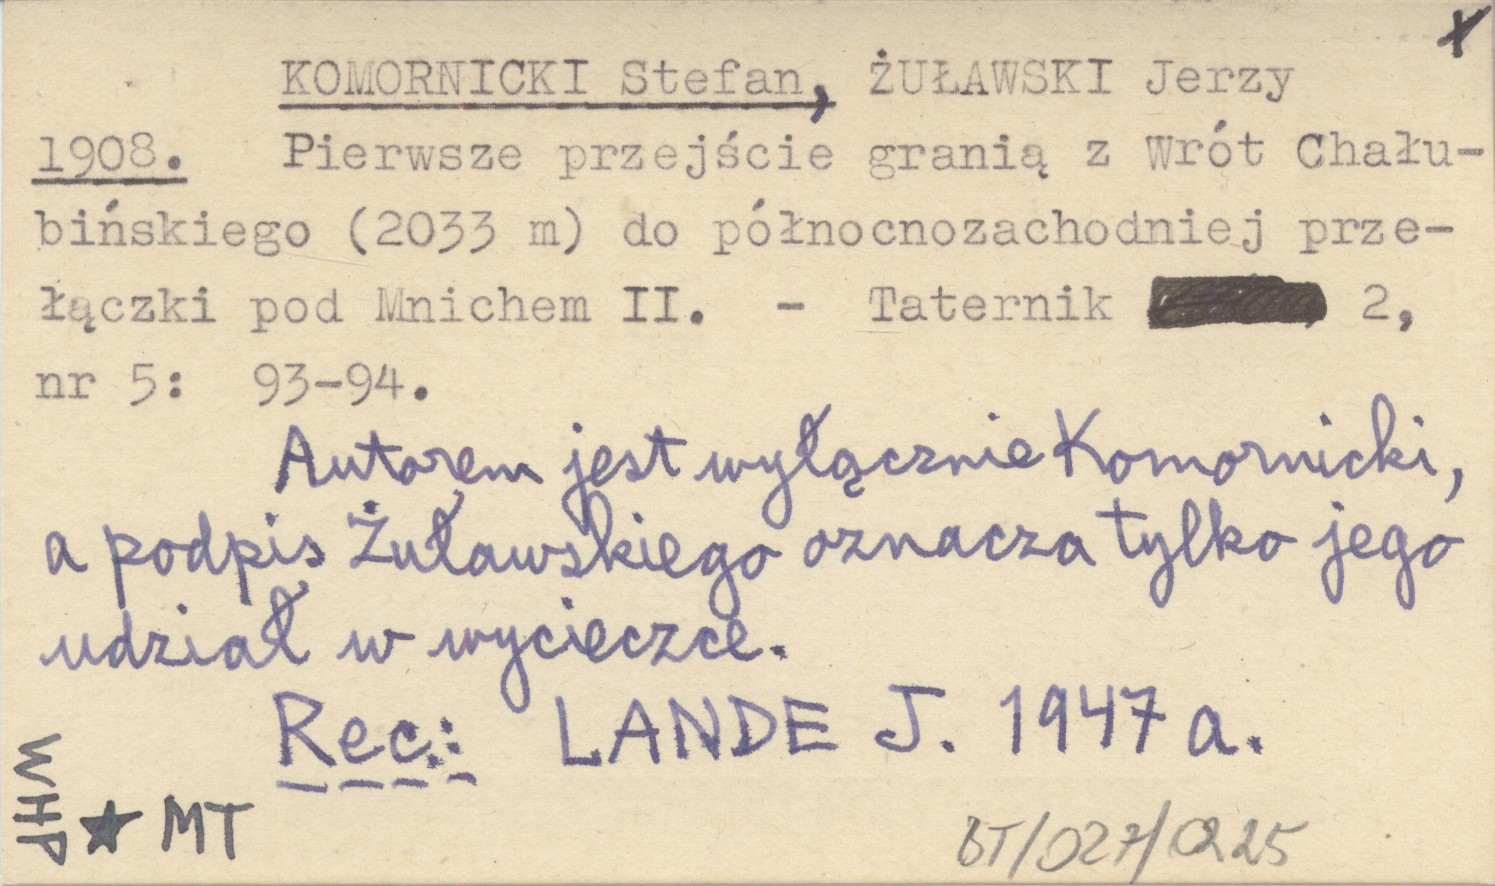 KOMORNICKI Stefan, ŻUŁAWSKI Jerzy
1908. Pierwsze przejście granią z Wrót Chału-
bińskiego (2033 m) do północnozachodniej prze-
łączki pod Mnichem II. - Taternik 2,
nr 5: 93-94.
Autorem jest wyłącznie Komornicki,
a podpis Żuławskiego oznacza tylko jego
udział w wycieczce.
Rec.: LANDE J. 1947 a.
WHP
★ MT
BT/027/0225